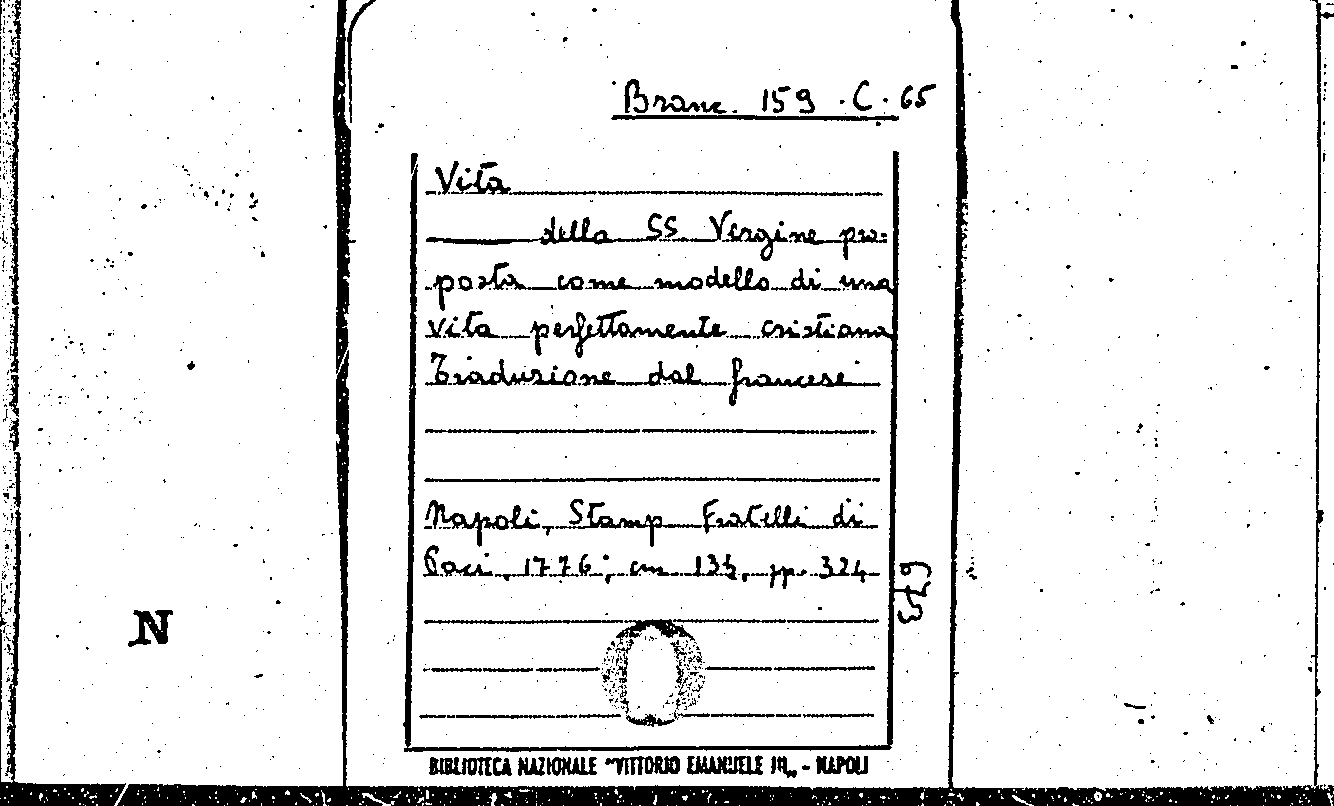 Branc. 159 . C . 65
Vita
della SS. Vergine pro-
posta come modello di una
vita perfettamente cristiana
Traduzione dal francese
Napoli, Stamp Fratelli di
Paci, 1776; cm 13½, pp. 324
N
BIBLIOTECA NAZIONALE "VITTORIO EMANUELE III„ - NAPOLI